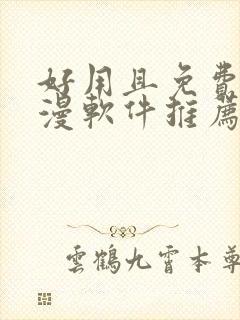 好用且免費
漫軟件推薦
雲鶴九霄本尊